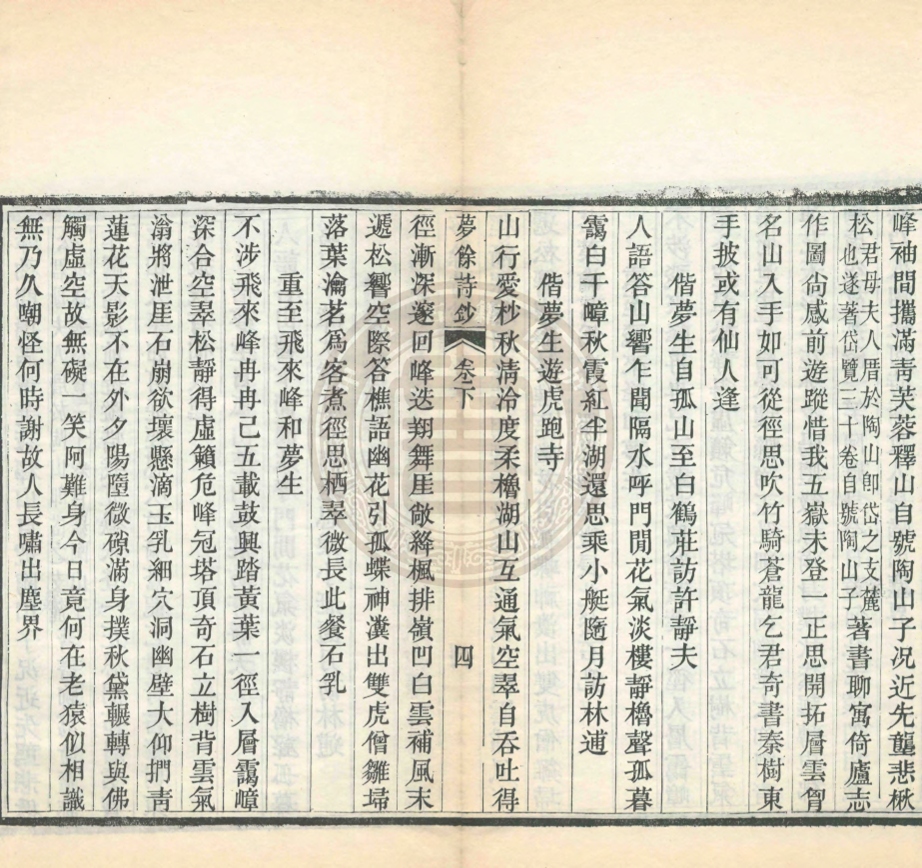 峰袖間攜滿青芙蓉釋山自號陶山子况近先龔悲楸
松君毋夫人厝於陶山卽岱之支麓
也遂著岱覽三十卷自號陶山子著書聊寓倚廬志
作圖尙感前遊蹤惜我五嶽未登一正思開拓層雲胷
名山入手如可從徑思吹竹騎蒼龍乞君奇書秦樹東
手披或有仙人逢
偕夢生自孤山至白鶴莊訪許靜夫
人語答山響乍聞隔水呼門閒花氣淡樓靜櫓聲孤暮
靄白千嶂秋霞紅半湖還思乘小艇隨月訪林逋
偕夢生遊虎跑寺
山行愛杪秋清泠度柔櫓湖山互通氣空翠自吞吐得
夢餘詩鈔 卷下 四
徑漸深邃回峰迭翔舞厓敞絳楓排嶺凹白雲補風末
遞松響空際答樵語幽花引孤蝶神瀵出雙虎僧雛埽
落葉瀹茗爲客煮徑思栖翠微長此餐石乳
重至飛來峰和夢生
不涉飛來峰冉冉已五載鼓興踏黃葉一徑入層靄嶂
深合空翠松靜得虛籟危峰冠塔頂奇石立樹背雲氣
滃將泄厓石崩欲壞懸滴玉乳細穴洞幽壁大仰捫青
蓮花天影不在外夕陽墮微隙滿身撲秋黛輾轉與佛
觸虛空故無礙一笑阿難身今日竟何在老猿似相識
無乃久嘲怪何時謝故人長嘯出塵界